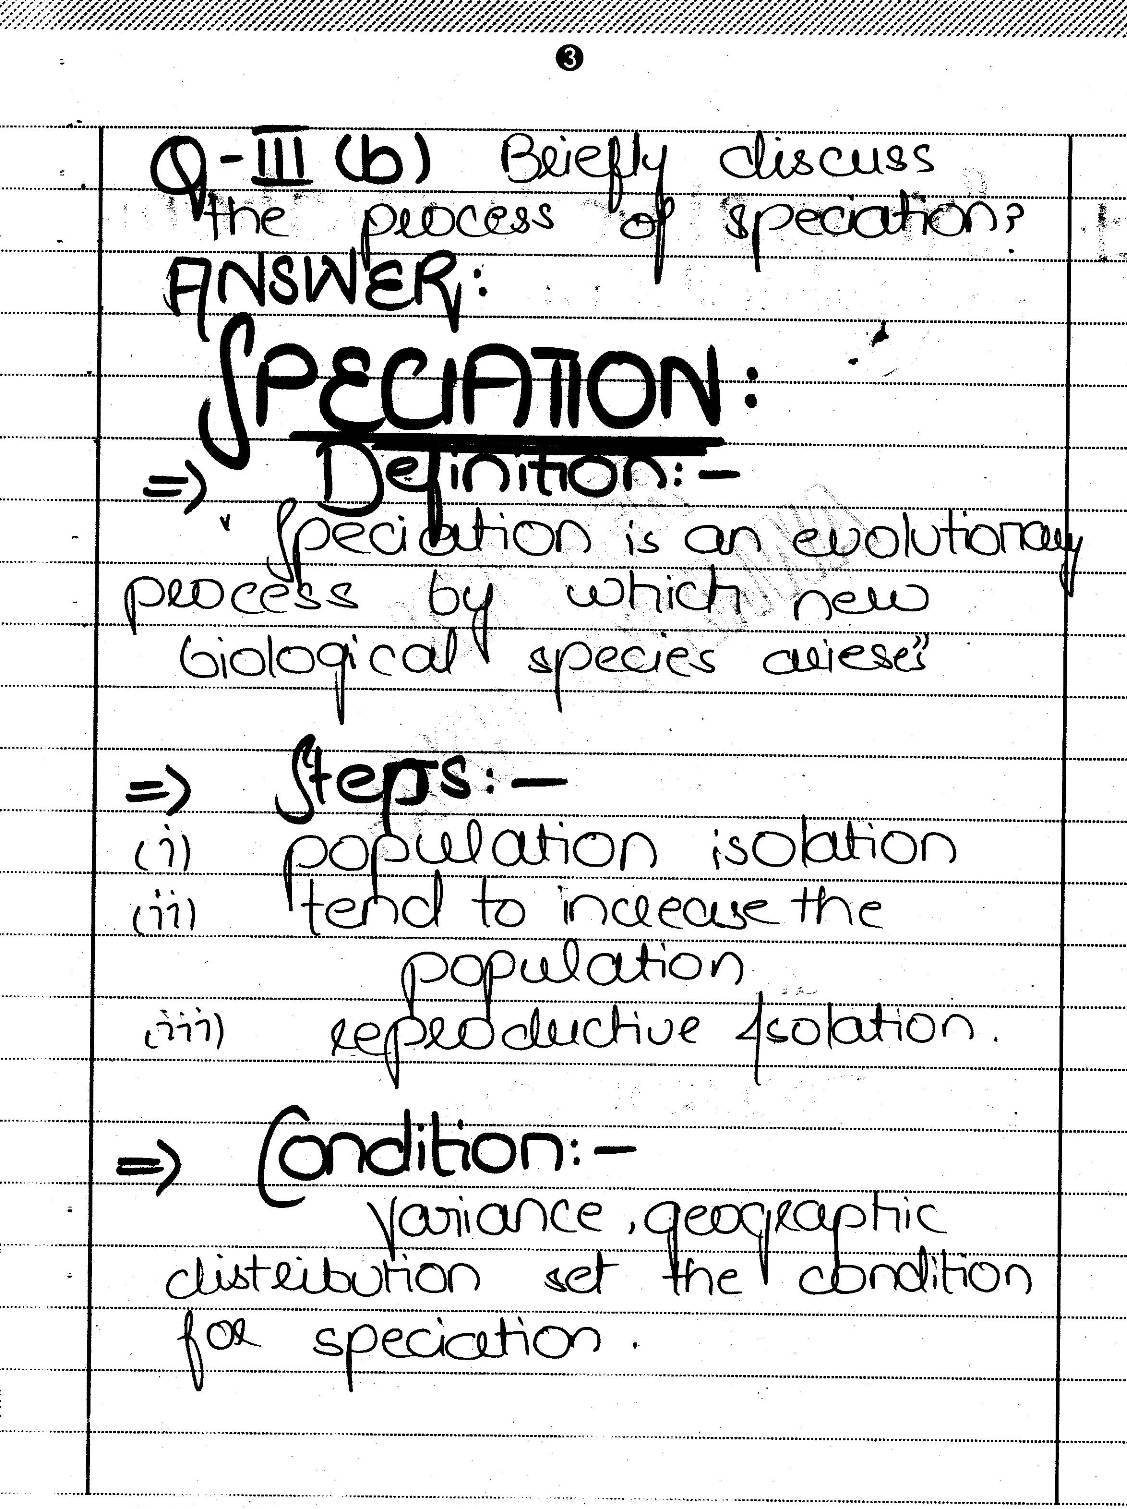 3
Q-III (b) Briefly discuss
the process of speciation?
ANSWER:
SPECIATION:
=> Definition:-
Speciation is an evolutionary
process by which new
biological species arises"
=> Steps:-
(i) population isolation
(ii) tend to increase the
population
(iii) reproductive Isolation.
=> Condition:-
Variance, geographic
distribution set the condition
for speciation.